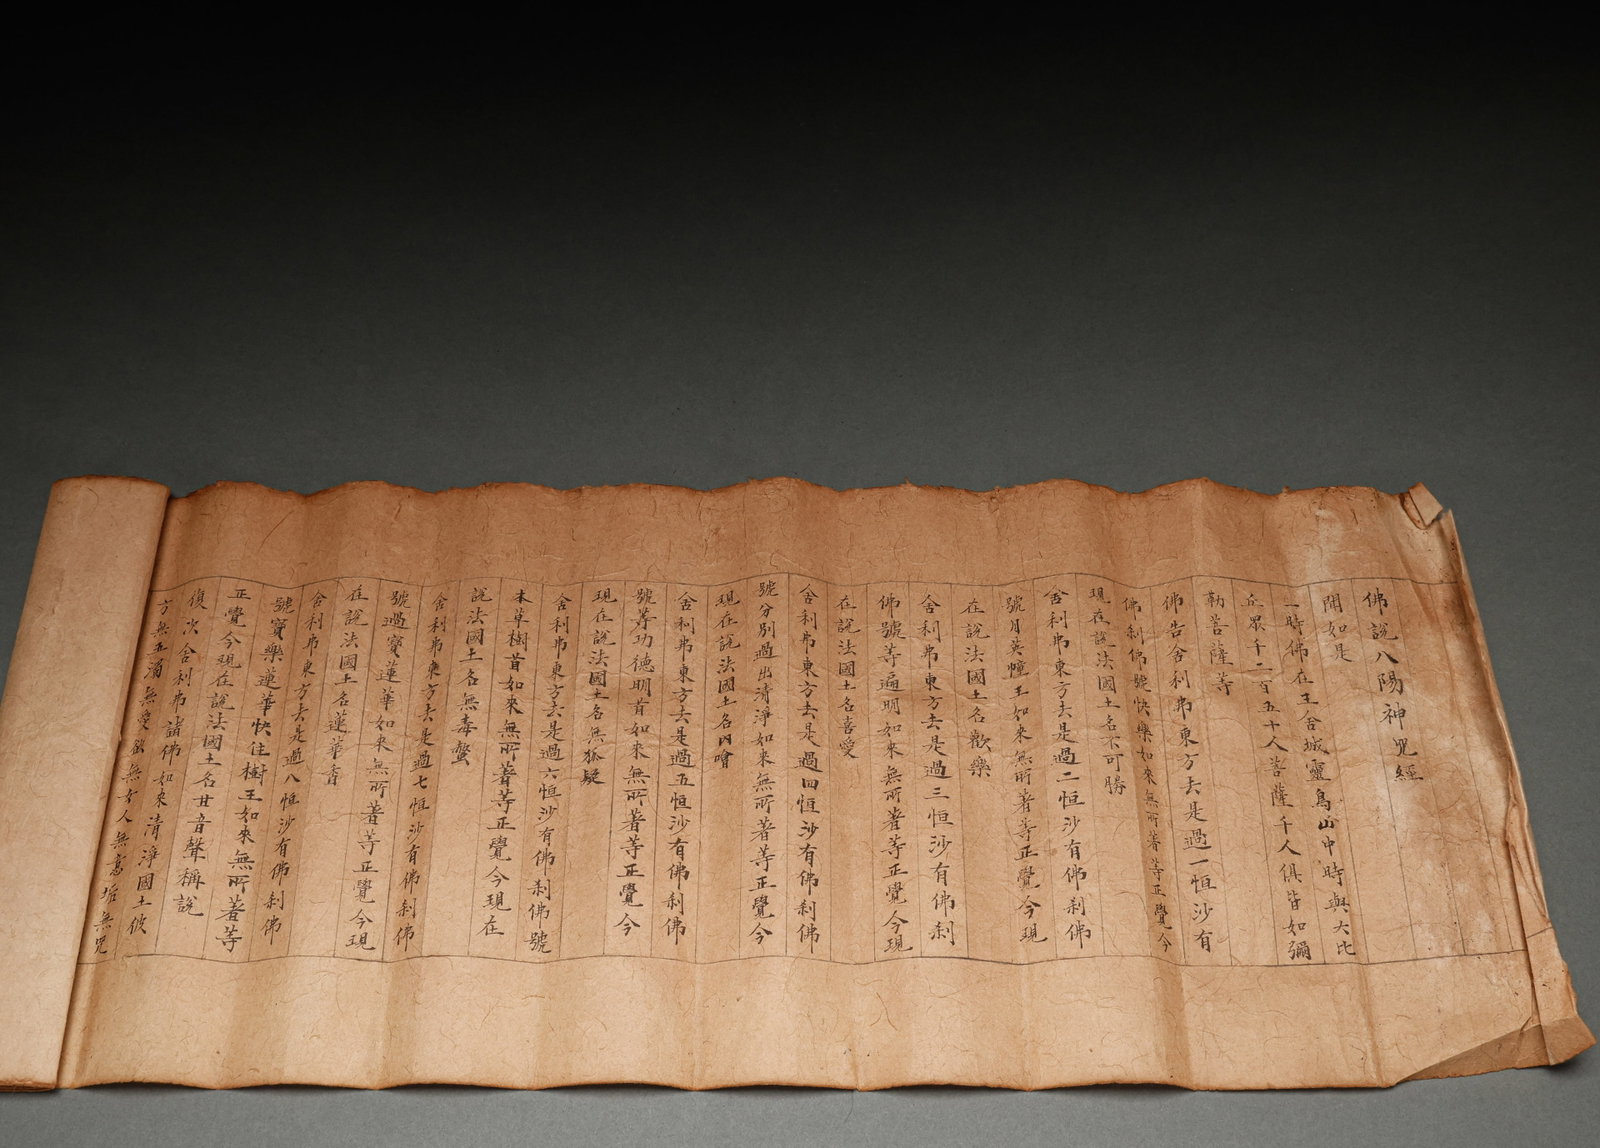 佛說八陽神咒經
聞如是
一時佛在王舍城靈鳥山中時與大比
丘眾千二百五十人菩薩千人俱皆如彌
勒菩薩等
佛告舍利弗東方去是過一恒沙有
佛剎佛號快樂如來無所著等正覺今
現在說法國土名不可勝
舍利弗東方去是過二恒沙有佛剎佛
號月英幢王如來無所著等正覺今現
在說法國土名歡樂
舍利弗東方去是過三恒沙有佛剎
佛號等遍明如來無所著等正覺今現
在說法國土名喜愛
舍利弗東方去是過四恒沙有佛剎佛
號分別過出清淨如來無所著等正覺今
現在說法國土名
舍利弗東方去是過五恒沙有佛剎佛
號等功德明首如來無所著等正覺今
現在說法國土名無狐疑
舍利弗東方去是過六恒沙有佛剎佛號
本草樹首如來無所著等正覺今現在
說法國土名無毒螫
舍利弗東方去是過七恒沙有佛剎佛
號過寶蓮華如來無所著等正覺今現
在說法國土名蓮華香
舍利弗東方去是過八恒沙有佛剎佛
號寶樂蓮華快住樹王如來無所著等
正覺今現在說法國土名甘音聲稱說
復次舍利弗諸佛如來清淨國土彼
方無五濁無愛無女人無意垢無咒